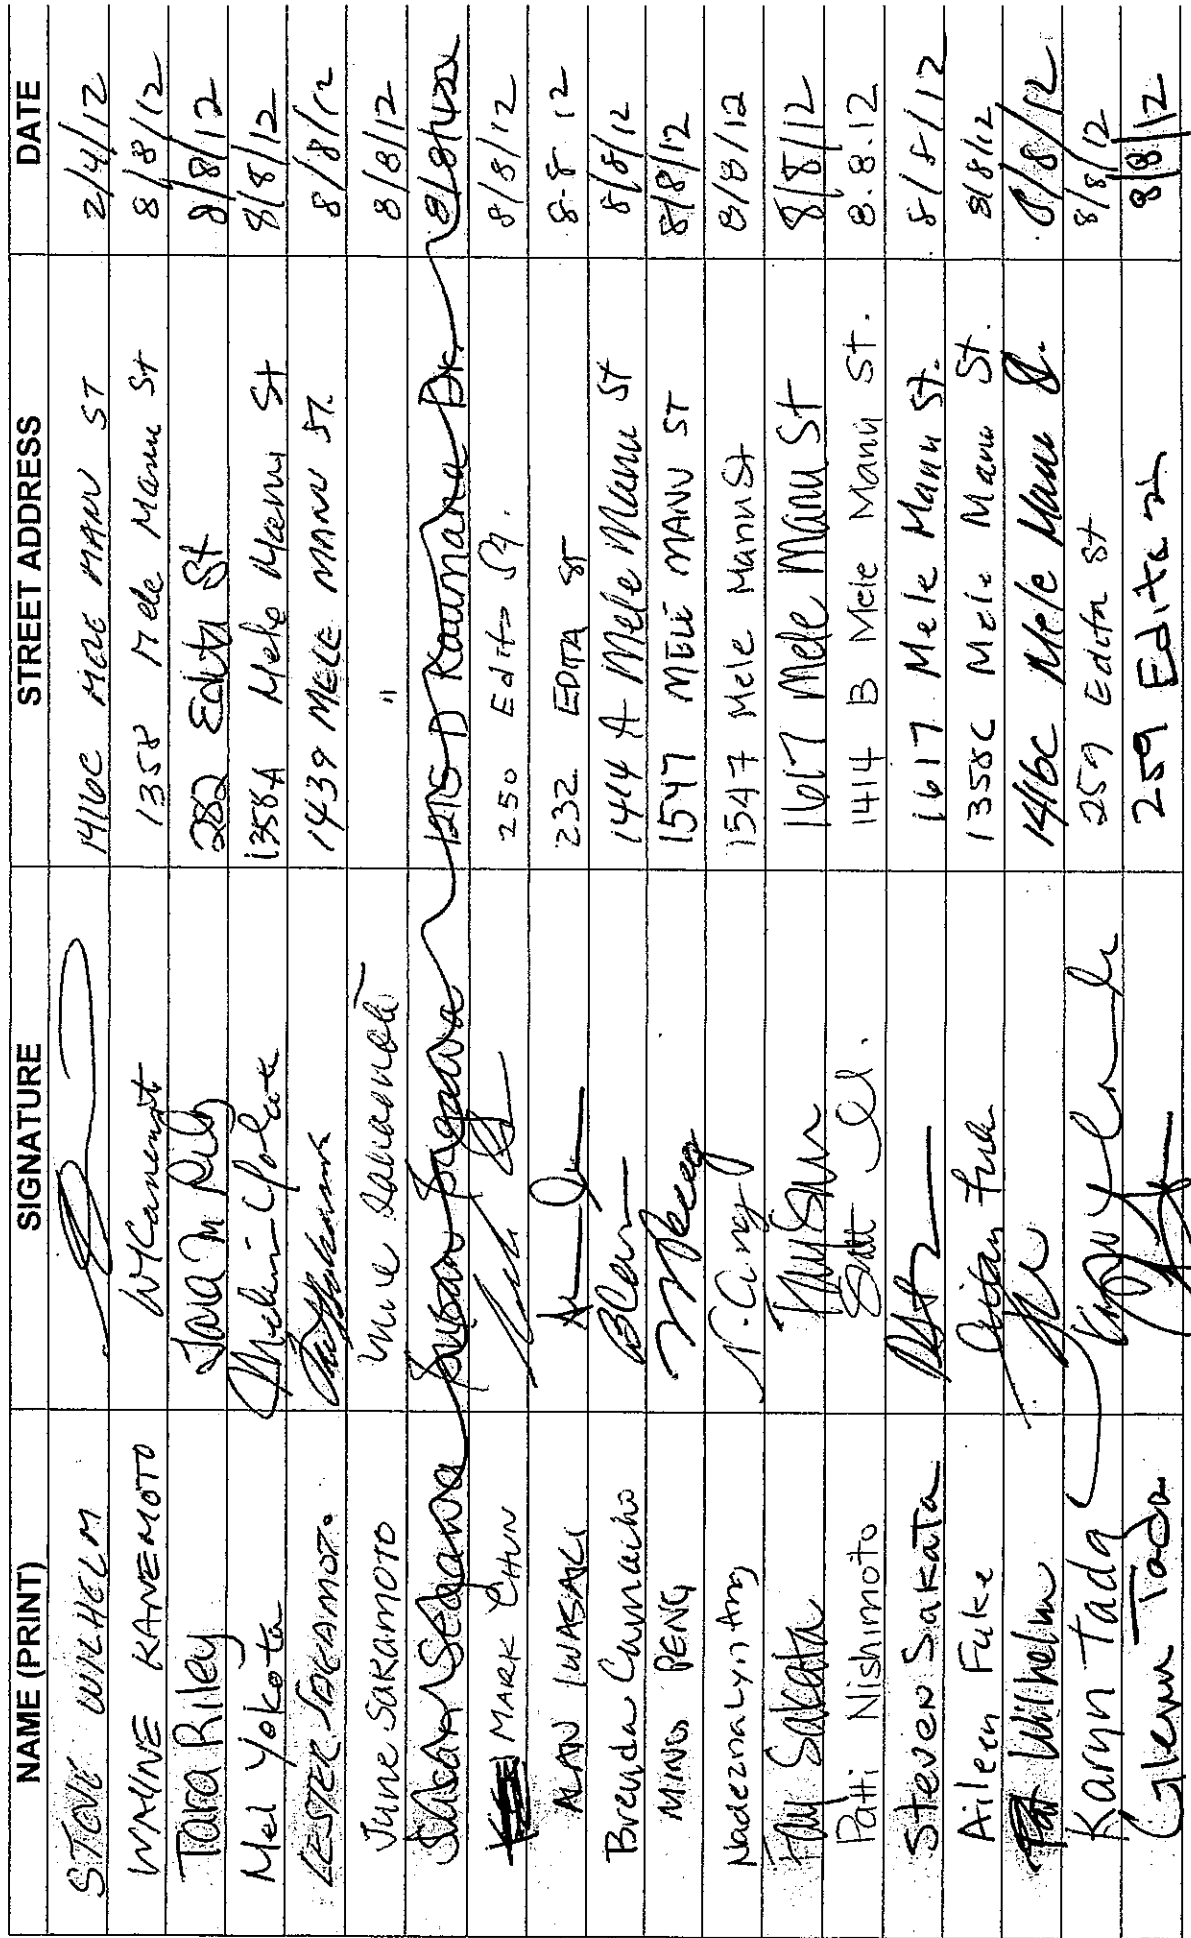 NAME (PRINT) SIGNATURE STREET ADDRESS DATE
STEVE WILHELM 1416C MELE MANU ST 2/4/12
WAYNE KANEMOTO W Kanemoto 1358 Mele Manu St 8/8/12
Tara Riley Tara M Riley 282 Edita St 8/8/12
Mel Yokota 1358A Mele Manu St 8/8/12
LESTER SAKAMOTO 1439 MELE MANU ST. 8/8/12
June SAKAMOTO June Sakamoto " 8/8/12
Susan Segawa Susan Segawa 1275D Kaumana Dr. 8/8/12
MARK CHUN 250 Edita St. 8/8/12
ALAN IWASAKI 232 EDITA ST 8-8-12
Brenda Camacho 1414 A Mele Manu ST 8/8/12
MING PENG M Peng 1547 MELE MANU ST 8/8/12
Nadezna Lyn Ang N. Ang 1547 Mele Manu St 8/8/12
Fay Sakata 1617 Mele Manu St 8/8/12
Patti Nishimoto 1414 B Mele Manu St. 8.8.12
Steven Sakata 1617 Mele Manu St. 8/8/12
Aileen Fuke Aileen Fuke 1358C Mele Manu St. 8/8/12
Pat Wilhelm 1416C Mele Manu St. 8/8/12
Karyn Tada 259 Edita St 8/8/12
Glenn Tada 259 Edita St 8/8/12